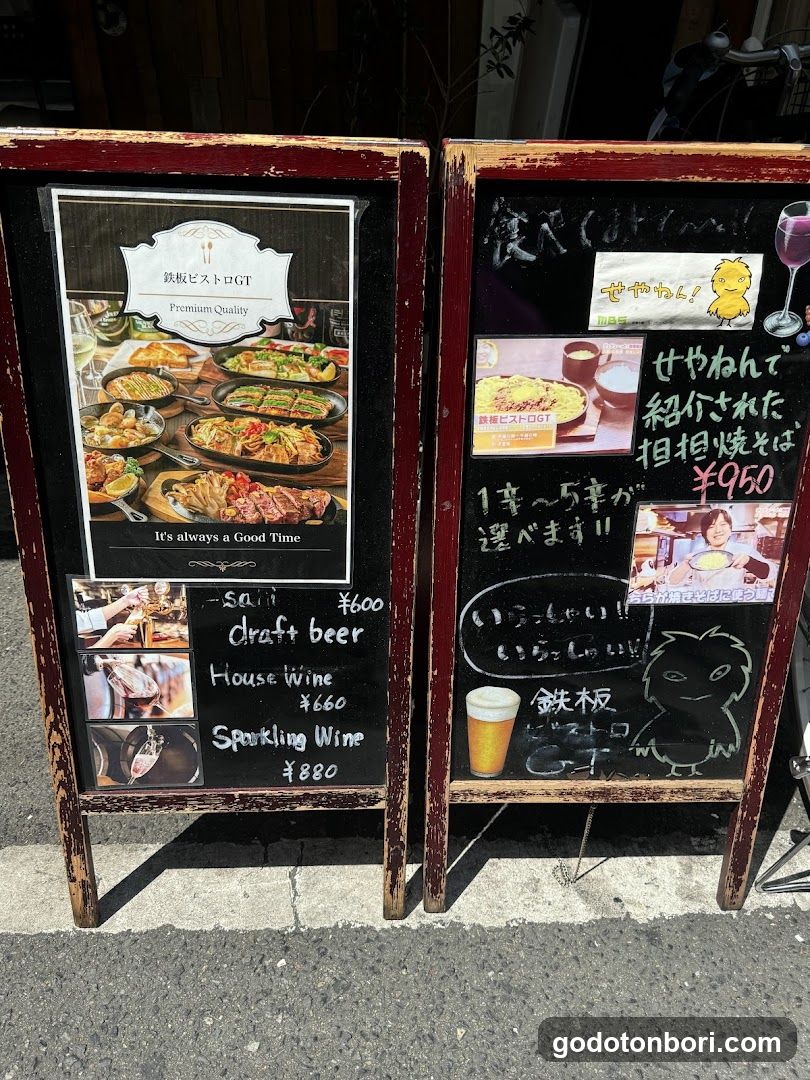 鉄板ビストロGT
Premium Quality
It's always a Good Time
draft beer
¥600
House Wine
¥660
Sparkling Wine
¥880
せやねん!
MBS
せやねんで
紹介された
担担焼そば
¥950
鉄板ビストロGT
1辛〜5辛が
選べます!!
いらっしゃい!!
いらっしゃい!!
鉄板
ビストロ
GT
godotonbori.com